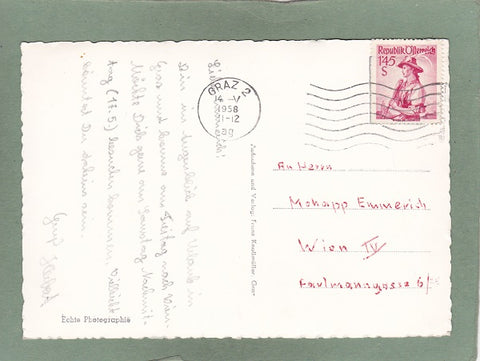 Lieber Emmerich!
Bin im Augenblick auf Urlaub in
Graz und komme am Freitag nach Wien.
Möchte Dich gerne am Samstag Nachmit-
tag (17.5) besuchen kommen. Vielleicht
könntest Du zuhause sein.
Gruß
Echte Photographie
Aufnahme und Verlag: Franz Knollmüller, Graz
GRAZ 2
14 -V
1958
11-12
Republik Österreich
1'45
S
An Herrn
Mokapp Emmerich
Wien IV
Faulmanngasse 6/